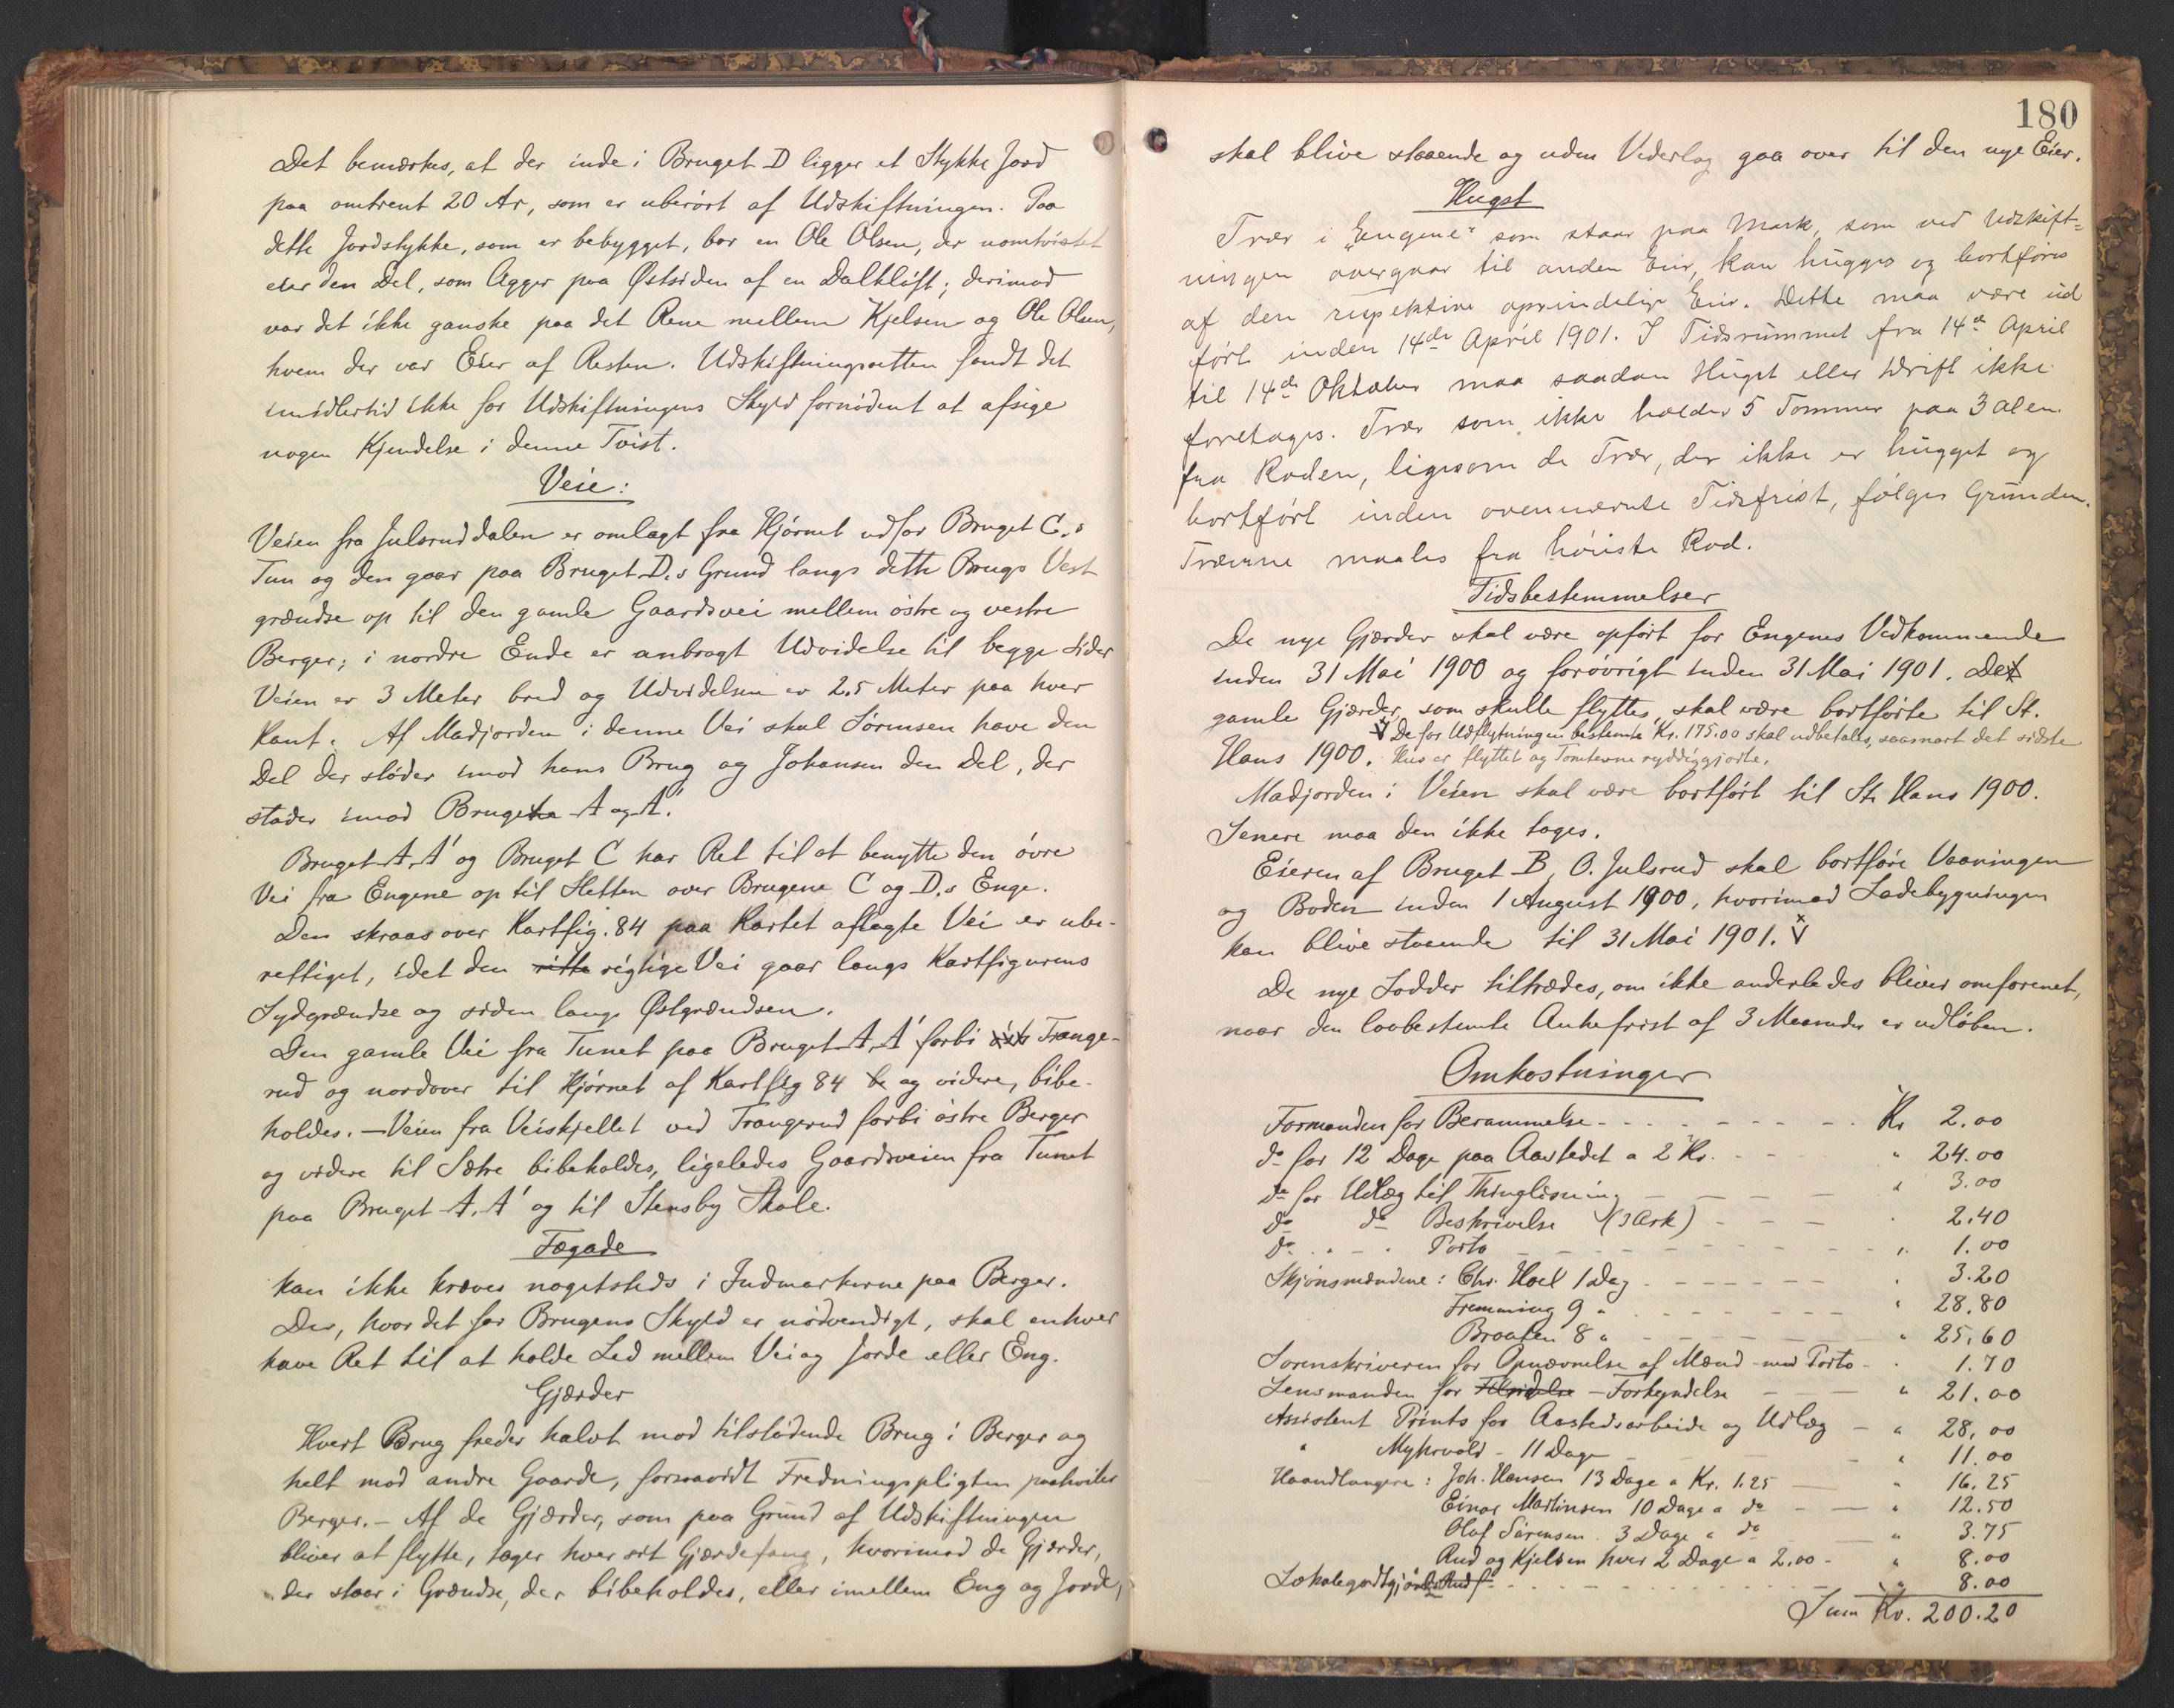 Det bemærkes, at der inde i Bruget D ligger et Stykke Jord
paa omtrent 20 Ar, som er uberört af Udskiftningen. Paa
dette Jordstykke, som er bebygget, bor en Ole Olsen, der uomtvistet
eier den Del, som ligger paa Østsiden af en Dalkløft; derimod
var det ikke ganske paa det Rene mellem Kjelsen og Ole Olsen,
hvem der var Eier af Resten. Udskiftningsretten fandt det
imidlertid ikke for Udskiftningens Skyld fornödent at afsige
nogen Kjendelse i denne Tvist.
Veie:
Veien fra Julsruddalen er omlagt fra Hjörnet udfor Bruget C.s
Tun og den gaar paa Bruget D.s Grund langs dette Brugs Vest
grændse op til den gamle Gaardsvei mellem östre og vestre
Berger; i nordre Ende er anbragt Udvidelse til begge Sider
Veien er 3 Meter bred og Udvidelsen er 2.5 Meter paa hver
Kant. Af Madjorden i denne Vei skal Sörensen have den
Del der stöder imod hans Brug og Johansen den Del, der
stöder imod Brugene A og A'.
Bruget A, A' og Bruget C har Ret til at benytte den övre
Vei fra Engene op til Sletten over Brugene C og D.s Enge.
Den skraas over Kartfig. 84 paa Kartet aflagte Vei er ube-
rettiget, idet den ritte rigtige Vei gaar langs Kartfigurens
Sydgrændse og siden langs Østgrændsen.
Den gamle Vei fra Tunet paa Bruget A, A' forbi Trange-
rud og nordover til Hjörnet af Kartfig 84 be og videre, bibe-
holdes. — Veien fra Veiskjellet ved Trangerud forbi östre Berger
og videre til Sætre bibeholdes, ligeledes Gaardsveien fra Tunet
paa Bruget A, A' og til Stensby Skole.
Fægade
kan ikke kræves nogetsteds i Indmarkerne paa Berger.
Der, hvor det for Brugens Skyld er nödvendigt, skal enhver
have Ret til at holde Led mellem Vei og Jorde eller Eng.
Gjærder
Hvert Brug freder halvt mod tilstödende Brug i Berger og
helt mod andre Gaarde, forsaavidt Fredningspligten paahviler
Berger. — Af de Gjærder, som paa Grund af Udskiftningen
bliver at flytte, tager hver sit Gjærdefang, hvorimod de Gjærder,
der staar i Grændse, der bibeholdes, eller imellem Eng og Jorde,
180
skal blive staaende og uden Vederlag gaa over til den nye Eier.
Hugst
Trær i "Engene" som staar paa Mark, som ved Udskift=
ningen overgaar til anden Eier, kan hugges og bortføres
af den respektive oprindelige Eier. Dette maa være ud
ført inden 14de April 1901. I Tidsrummet fra 14de April
til 14de Oktober maa saadan Hugst eller Drift ikke
foretages. Trær som ikke holder 5 Tommer paa 3 alen
fra Roden, ligesom de Trær, der ikke er hugget og
bortført inden ovennævnte Tidsfrist, følger Grunden.
Træerne maales fra høieste Rod.
Tidsbestemmelser
De nye Gjærder skal være opført for Engenes Vedkommende
inden 31 Mai 1900 og forøvrigt inden 31 Mai 1901. De
gamle Gjærder, som skulle flyttes, skal være bortførte til St.
V De for Udflytningen bestemte Kr. 175.00 skal udbetales, saasnart det sidste
Hans 1900. Hus er flyttet og Tomterne ryddiggjorte.
Madjorden i Veien skal være bortført til St. Hans 1900.
Senere maa den ikke tages.
Eieren af Bruget B, O. Julsrud skal bortføre Vaaningen
og Boden inden 1 August 1900, hvorimod Ladebygningen
kan blive staaende til 31 Mai 1901. V
De nye Lodder tiltrædes, om ikke anderledes bliver omforenet,
naar den lovbestemte Ankefrist af 3 Maaneder er udløben.
Omkostninger
Formanden for Berammelse - - - Kr 2.00
do for 12 Dage paa Aastedet a 2 Kr. - - " 24.00
do for Udlæg til Thinglæsning - - - " 3.00
do do Beskrivelse (3 Ark) - - - " 2.40
do " - " Porto - - - " 1.00
Skjönsmændene: Chr. Hoel 1 Dag - - - " 3.20
Fremming 9 " - - - " 28.80
Braaten 8 " - - - " 25.60
Sorenskriveren for Opnævnelse af Mænd med Porto - " 1.70
Lensmanden for Forkyndelse - - - " 21.00
Assistent Printz for Aastedsarbeide og Udlæg - " 28.00
" Myhrvold - 11 Dage - - " 11.00
Haandlangere: Joh. Hansen 13 Dage a Kr. 1.25 - " 16.25
Einar Martinsen 10 Dage a do - - " 12.50
Olaf Sørensen 3 Dage a do - " 3.75
Rud og Kjelsen hver 2 Dage a 2.00 - " 8.00
Lokalegodtgjörelse - - - " 8.00
Sum Kr. 200.20